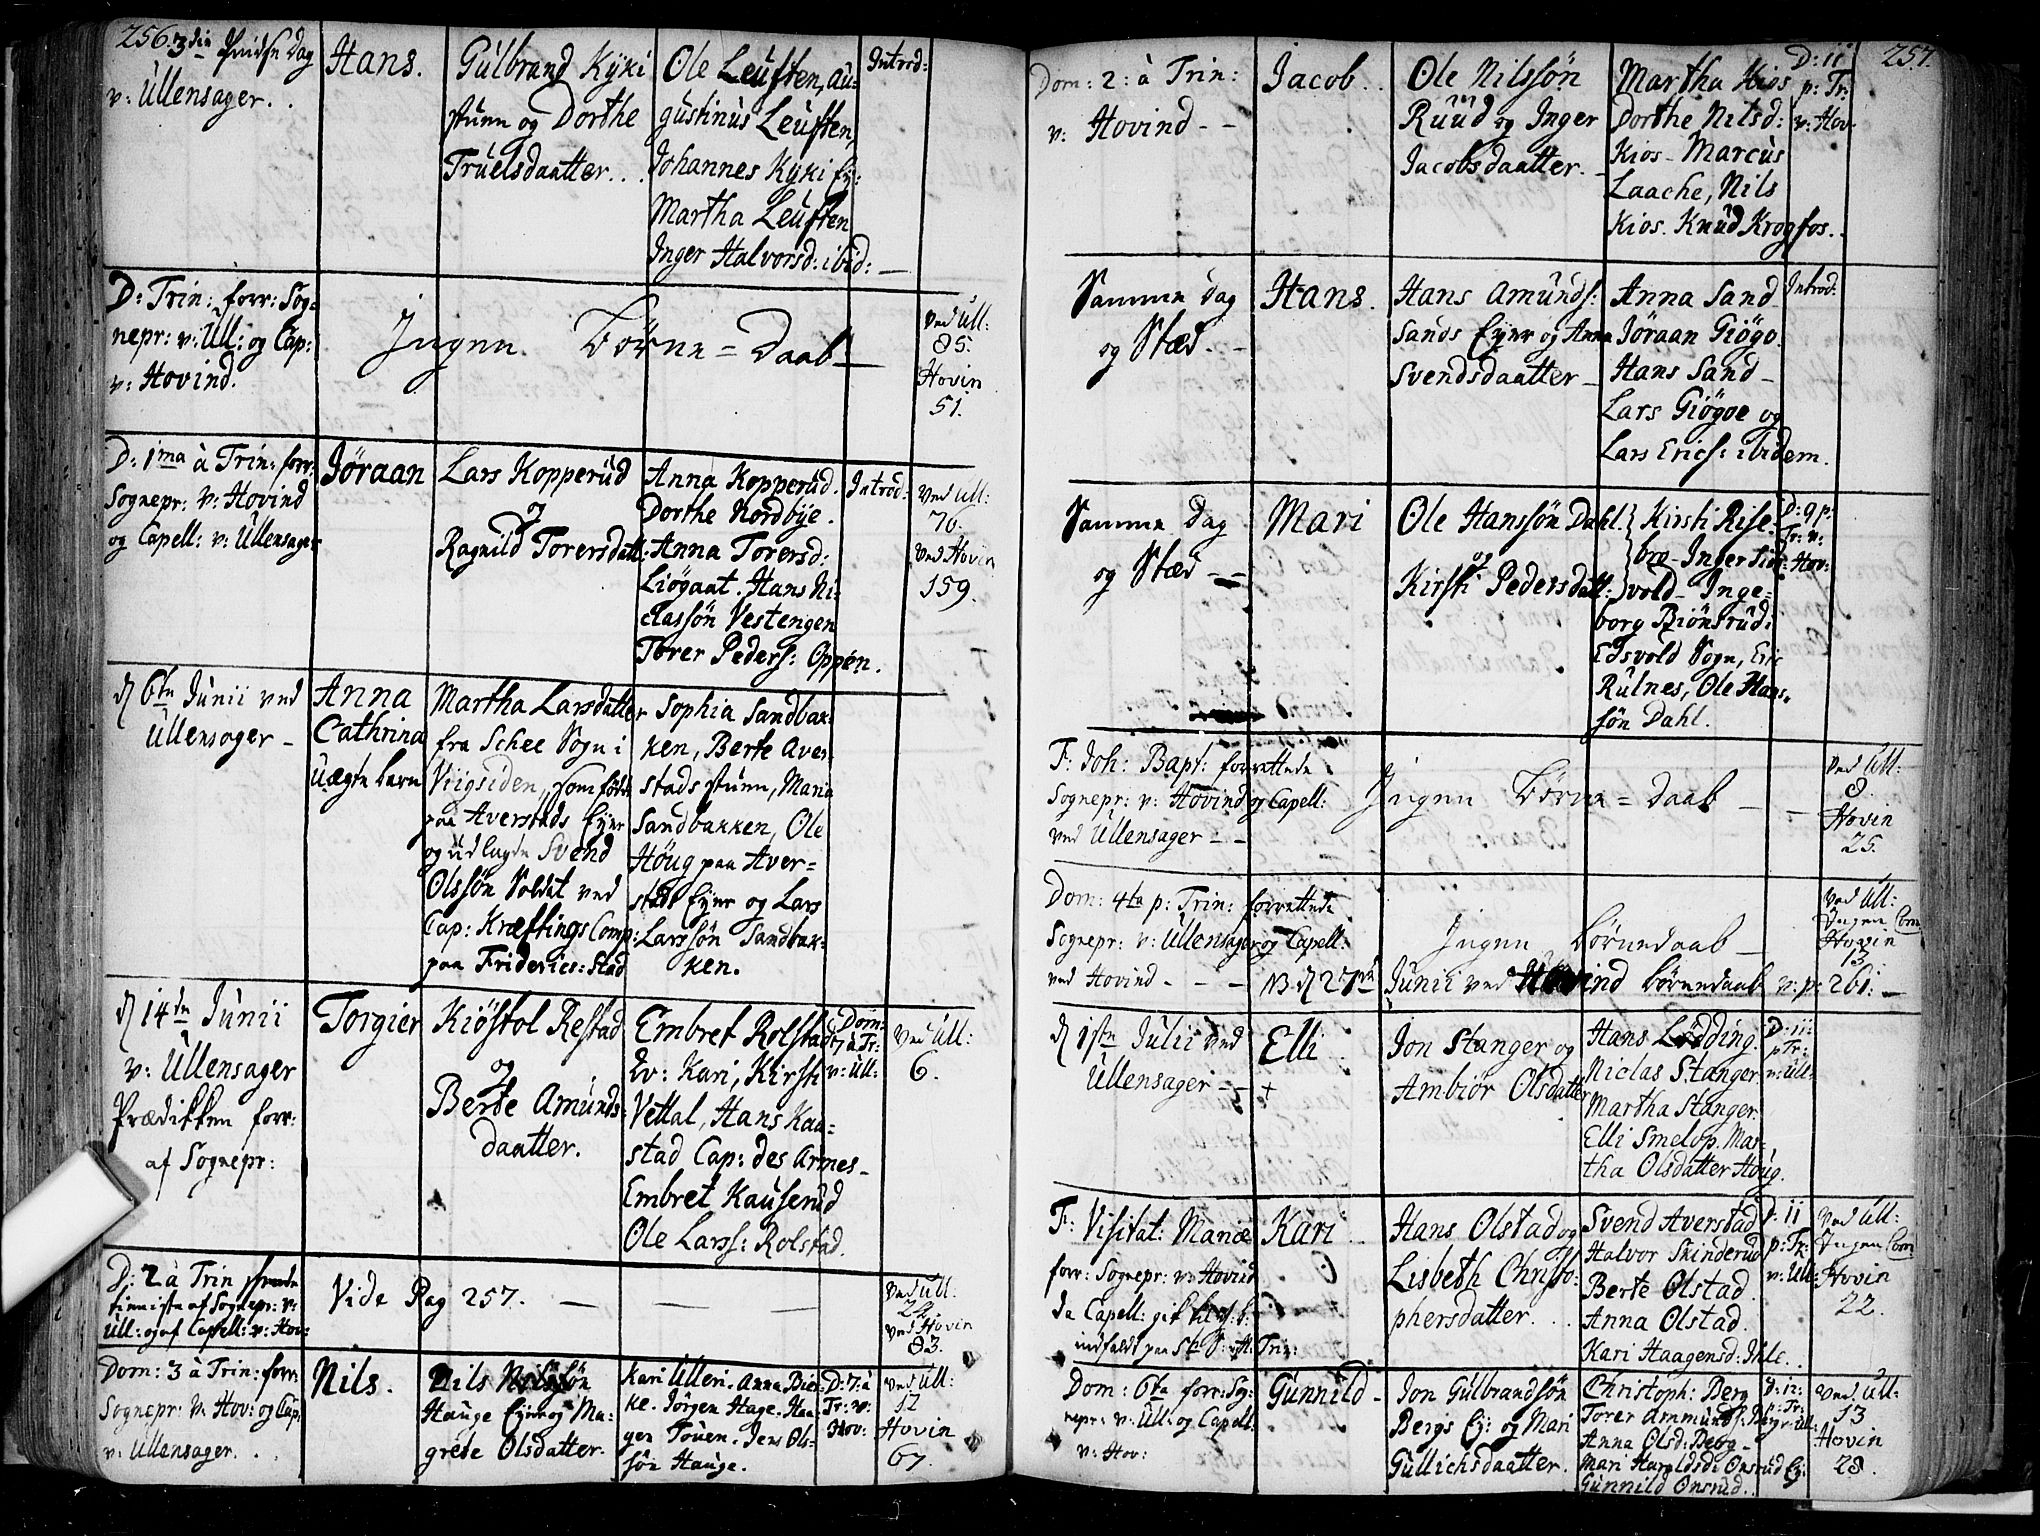 256.
3die Pindse Dag
v: Ullensager. .
Hans.
Gulbrand Kyki
stuen og Dorthe
Truelsdaatter. . .
Ole Leuften, Au-
gustinus Leuften,
Johannes Kyki Ey:
Martha Leuften
Inger Halvorsd: ibid: —
Introd:
D: Trin: forr: Sog-
nepr: v: Ull: og Cap:
v: Hovind.
Ingen Börne = Daab —
Ved Ull:
85.
Hovin
51.
D: 1ma à Trin: forr:
Sognepr: v: Hovind
og Capell: v: Ullensager
Jöraan
Lars Kopperud
og
Ragnild Torersdatt:
Anna Kopperud.
Dorthe Nordbye.
Anna Torersd:
Liögaat. Hans Ni-
classön Vestengen
Torer Peders: Oppen.
Introd:
Ved Ull:
76.
Ved Hovin
159.
d 6te Junii ved
Ullensager —
Anna
Cathrina
Uægte barn
Martha Larsdatter
fra Schee Sogn i
Viigsiden, som födte
paa Averstads Eyer
og udlagde Svend
Olssön Soldat ved
Cap: Kræftings Comp:
paa Friderics: Stad
Sophia Sandbak-
ken, Berte Aver-
stadsstuen, Maria
Sandbakken, Ole
Höug paa Aver=
stads Eyer og Lars
Larssön Sandbak-
ken.
d 14de Junii
v: Ullensager
Prædikken forr:
af Sognepr:
Torgier
Kiöstol Restad
og
Berte Amunds-
daatter.
Embret Rolstad
Ev: Kari, Kirsti
Vettal, Hans Kau-
stad Cap: des Armes —
Embret Kauserud
Ole Larss: Rolstad.
Dom:
7 à Tr:
v: Ull:
Ved Ull:
6.
D: 2 à Trin
tienniste af Sognepr: v:
Ull: og af Capell: v: Hov:
Vide Pag 257. — — —
Ved Ull:
22
Ved Hovin
83.
Dom: 3 à Trin: forr:
Sognepr: v: Hov: og Cap:
v: Ullensager. . .
Nils.
Nils Nilssön
Hauge Eyer og Ma-
grete Olsdatter.
Kari Ulleri. Anna Bier-
ke. Jörgen Hage. Haa-
gen Touen. Jens Ols-
sön Hauge.
D: 7: à
Tr: v:
Hov:
Ved Ull:
12
Hovin
67.
257.
Dom: 2: à Trin:
v: Hovind - -
Jacob. .
Ole Nilssön
Ruud og Inger
Jacobsdaatter. -
Martha Kios
Dorthe Nilsd:
Kios - Marcus
Laache, Nils
Kios. Knud Krogfos. .
D: 11
p: Tr:
v: Hov:
Samme Dag
og Stæd. -
Hans.
Hans Amunds:
Sands Eyer og Anna
Svendsdaatter —
Anna Sand
Jöraan Giögo.
Hans Sand —
Lars Giögoe og
Lars Erics: ibidem.
Introd:
Samme Dag
og Stæd - -
Mari
Ole Hanssön Dahl.
og
Kirsti Pedersdatt:
Kirsti Rise-
broe - Inger Sid-
svold - Inge-
borg Biönsrud i
Edsvold Sogn, Eric
Rulnes, Ole Hans-
sön Dahl.
D: 9 p:
Tr: v:
Hov:
F: Joh: Bapt: forrettede
Sognepr: v: Hovind og Capell:
ved Ullensager - -
Ingen Börne = Daab —
Ved Ull:
8.
Hovin
25.
Dom: 4ta p: Trin: forrettede
Sognepr: v: Ullensager og Capell:
ved Hovind - - -
Ingen Börnedaab —
Ved Ull:
Ingen Com
Hovin
13.
NB d 27de Junii ved Hovind börnedaab v: p: 261: —
d 1ste Julii ved
Ullensager - -
Elli
+
Jon Stanger og
Ambiör Olsdatter
Hans Lödding.
Niclas Stanger
Martha Stanger.
Elli Smelop. Mar-
tha Olsdatter Houg.
D: 11:
p: Tr:
v: Ull:
F: Visitat: Mariæ
forr: Sognepr: v: Hovind
da Capell: gik til
indfaldt paa 5te S: à Trin:
Kari
Hans Olstad og
Lisbeth Christo-
phersdatter. . .
Svend Averstad
Halvor Skinderud
Berte Olstad.
Anna Olstad.
Kari Haagensd: Ihle. .
D: 11
p: Tr:
v: Ull:
Ved Ull:
Ingen Com
Hovin
22.
Dom: 6ta forr: Sog-
nepr: v: Ull: og Capell:
v: Hov:
Gunnild -
Jon Gulbrandsön
Bergs Ey: og Mari
Gullichsdaatter.
Christoph: Berg
Torer Ammunds: Berg
Anna Olsd: Berg -
Mari Haraldsd: Onsrud Ey:
Gunnild Onsrud. .
D: 12:
p: Tr:
v: Ull:
Ved Ull:
13
Hovin
28.